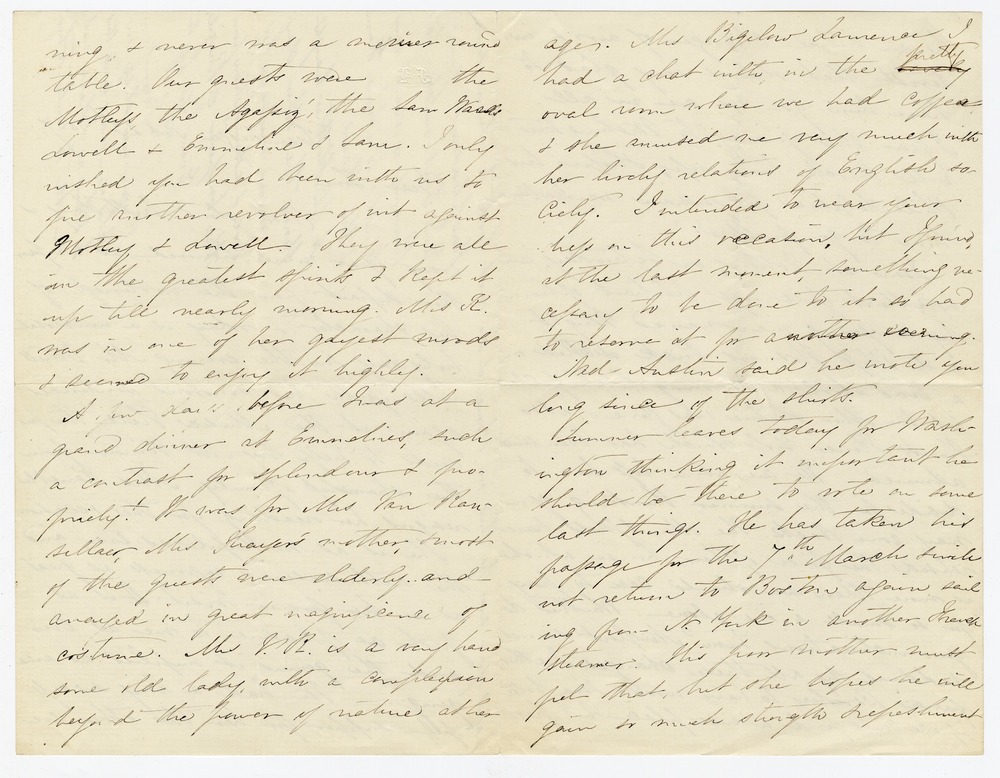 ning, & never was a merrier round
table. Our guests were the
Motleys, the Agassiz', the Sam Wards
Lowell & Emmeline & Sam. I only
wished you had been with us to
fire another revolver of wit against
Motley & Lowell. They were all
in the greatest spirits & kept it
up till nearly morning. Mrs K.
was in one of her gayest moods
& seemed to enjoy it highly.
A few days before I was at a
grand dinner at Emmelines, such
a contrast for splendour & pro-
priety! It was for Mrs Van Ran-
sellaer, Mrs Thayer's mother, & most
of the guests were elderly and
arrayed in great magnificence of
costume. Mrs V.R. is a very hand
some old lady, with a complexion
beyond the power of nature at her
ages. Mrs Bigelow Lawrence I
had a chat with, in the lovely pretty
oval room where we had coffee
& she amused me very much with
her lively relations of English so-
ciety. I intended to wear your
on this occasion, but found,
at the last moment, something ne-
cessary to be done to it so had
to reserve it for another evening.
Ned Austin said he wrote you
long since of the shirts.
Sumner leaves today for Wash-
ington thinking it important he
should be there to vote on some
last things. He has taken his
passage for the 7th March & will
not return to Boston again sail
ing from N. York in another French
steamer. His poor mother must
feel that, but she hopes he will
gain so much strength & refreshment